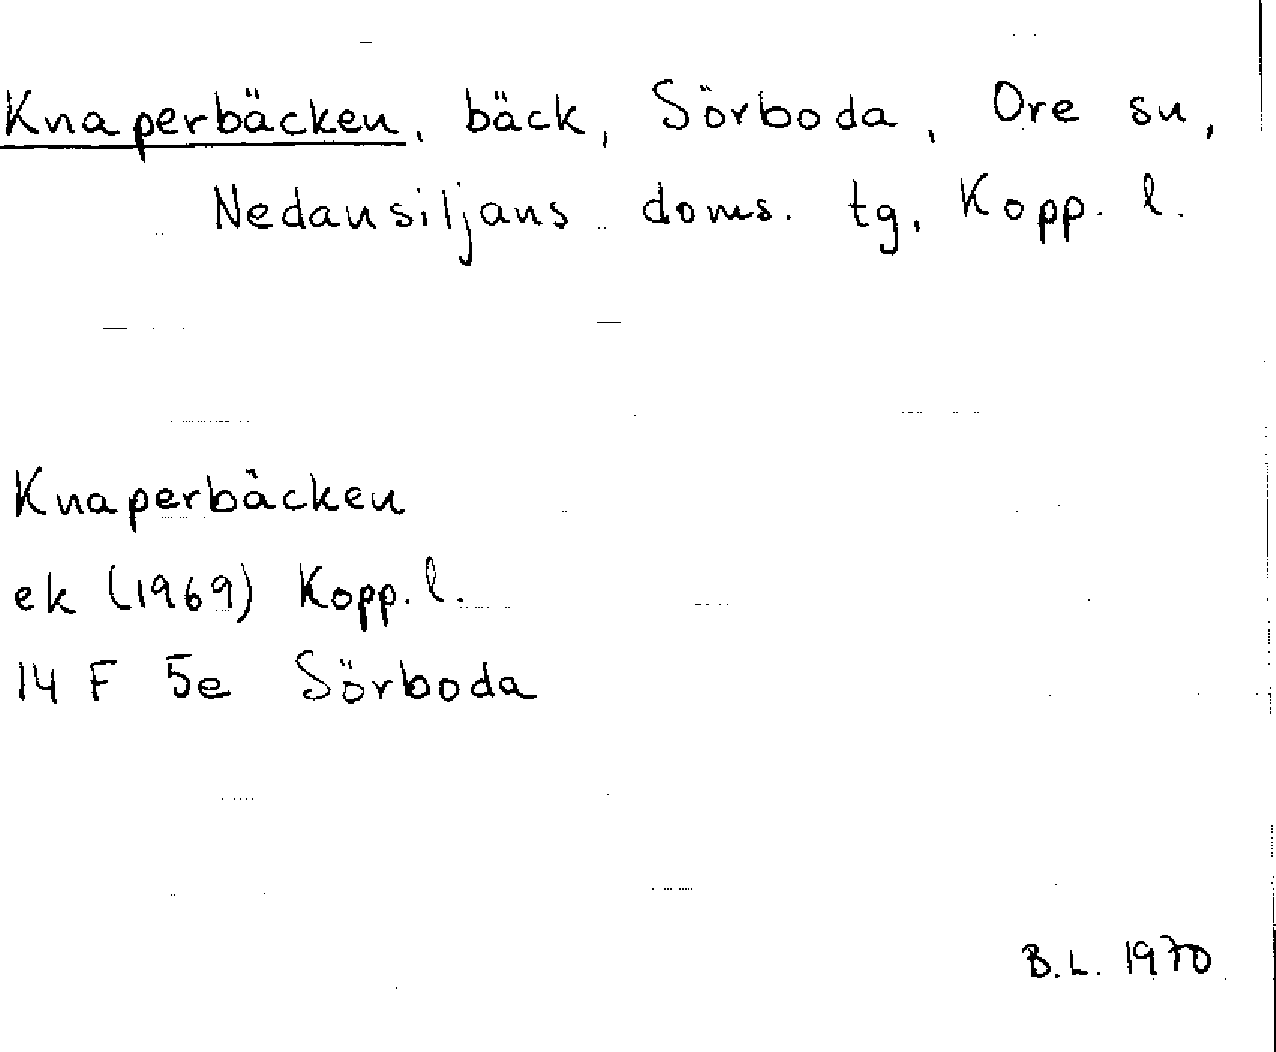 Knaperbäcken, bäck, Sörboda, Ore sn,
Nedansiljans doms. tg, Kopp. l.
Knaperbäcken
ek (1969) Kopp. l.
14 F 5e Sörboda
B.L. 1970